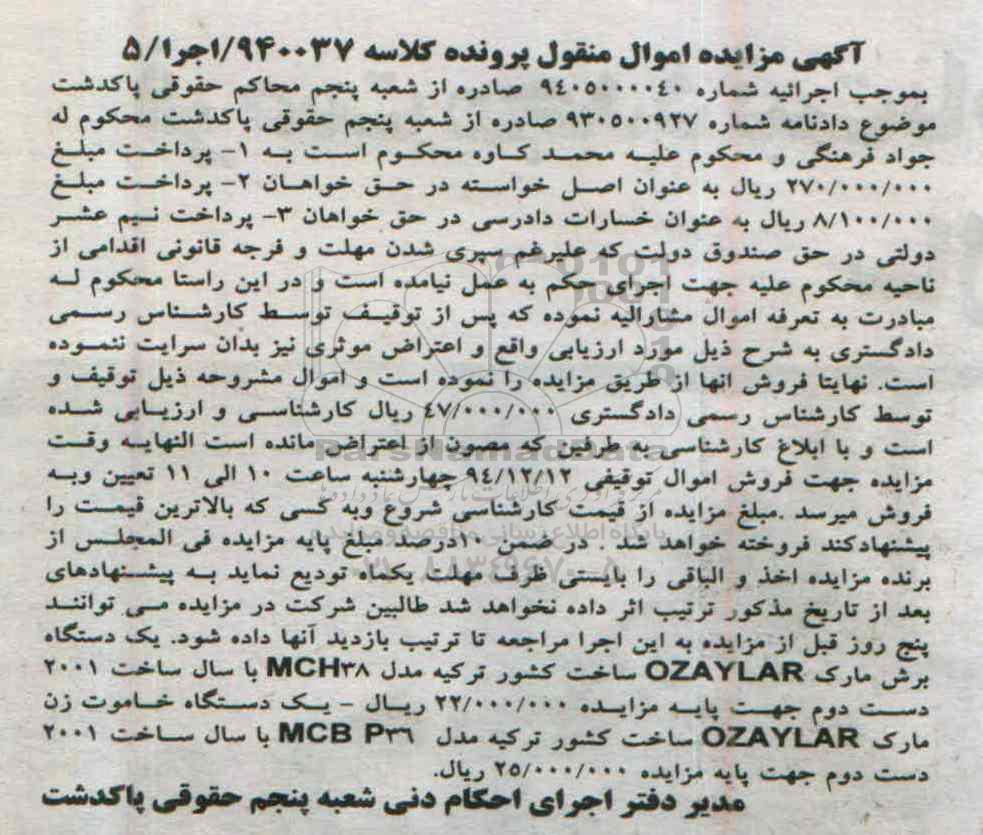 آگهی مزایده اموال منقول پرونده کلاسه ۹۴۰۰۳۷/اجرا/۵
بموجب اجرائیه شماره ۹٤۰۵۰۰۰۰٤۰ صادره از شعبه پنجم محاکم حقوقی پاکدشت
موضوع دادنامه شماره ۹۳۰۵۰۰۹۲۷ صادره از شعبه پنجم حقوقی پاکدشت محکوم له
جواد فرهنگی و محکوم علیه محمد کاوه محکوم است به ۱- پرداخت مبلغ
۲۷۰/۰۰۰/۰۰۰ ریال به عنوان اصل خواسته در حق خواهان ۲- پرداخت مبلغ
۸/۱۰۰/۰۰۰ ریال به عنوان خسارات دادرسی در حق خواهان ۳- پرداخت نیم عشر
دولتی در حق صندوق دولت که علیرغم سپری شدن مهلت و فرجه قانونی اقدامی از
ناحیه محکوم علیه جهت اجرای حکم به عمل نیامده است و در این راستا محکوم له
مبادرت به تعرفه اموال مشارالیه نموده که پس از توقیف توسط کارشناس رسمی
دادگستری به شرح ذیل مورد ارزیابی واقع و اعتراض موثری نیز بدان سرایت ننموده
است. نهایتا فروش انها از طریق مزایده را نموده است و اموال مشروحه ذیل توقیف و
توسط کارشناس رسمی دادگستری ٤۷/۰۰۰/۰۰۰ ریال کارشناسی و ارزیابی شده
است و با ابلاغ کارشناسی به طرفین که مصون از اعتراض مانده است النهایه وقت
مزایده جهت فروش اموال توقیفی ۹٤/۱۲/۱۲ چهارشنبه ساعت ۱۰ الی ۱۱ تعیین وبه
فروش میرسد .مبلغ مزایده از قیمت کارشناسی شروع وبه کسی که بالاترین قیمت را
پیشنهادکند فروخته خواهد شد . در ضمن ۱۰درصد مبلغ پایه مزایده فی المجلس از
برنده مزایده اخذ و الباقی را بایستی ظرف مهلت یکماه تودیع نماید به پیشنهادهای
بعد از تاریخ مذکور ترتیب اثر داده نخواهد شد طالبین شرکت در مزایده می توانند
پنج روز قبل از مزایده به این اجرا مراجعه تا ترتیب بازدید آنها داده شود. یک دستگاه
برش مارک OZAYLAR ساخت کشور ترکیه مدل MCH۳۸ با سال ساخت ۲۰۰۱
دست دوم جهت پایه مزایده ۲۲/۰۰۰/۰۰۰ ریال - یک دستگاه خاموت زن
مارک OZAYLAR ساخت کشور ترکیه مدل MCB P۳٦ با سال ساخت ۲۰۰۱
دست دوم جهت پایه مزایده ۲۵/۰۰۰/۰۰۰ ریال.
مدیر دفتر اجرای احکام دنی شعبه پنجم حقوقی پاکدشت
ParsNamadData
پایگاه اطلاع رسانی مناقصه و مزایده